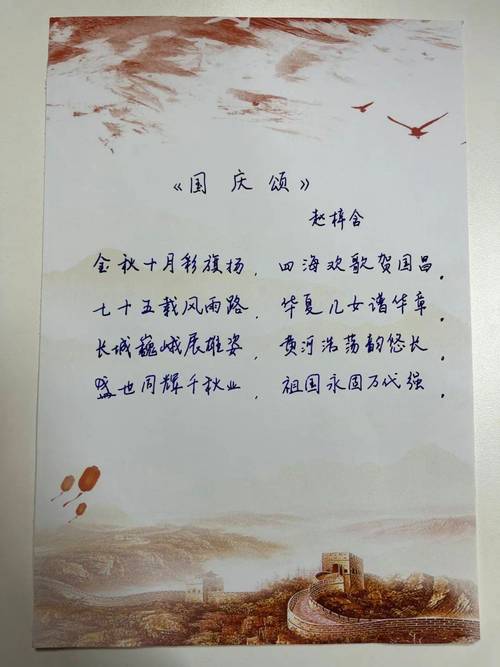 《国庆颂》
赵梓含
金秋十月彩旗扬，四海欢歌贺国昌。
七十五载风雨路，华夏儿女谱华章。
长城巍峨展雄姿，黄河浩荡韵悠长。
盛世同辉千秋业，祖国永固万代强。